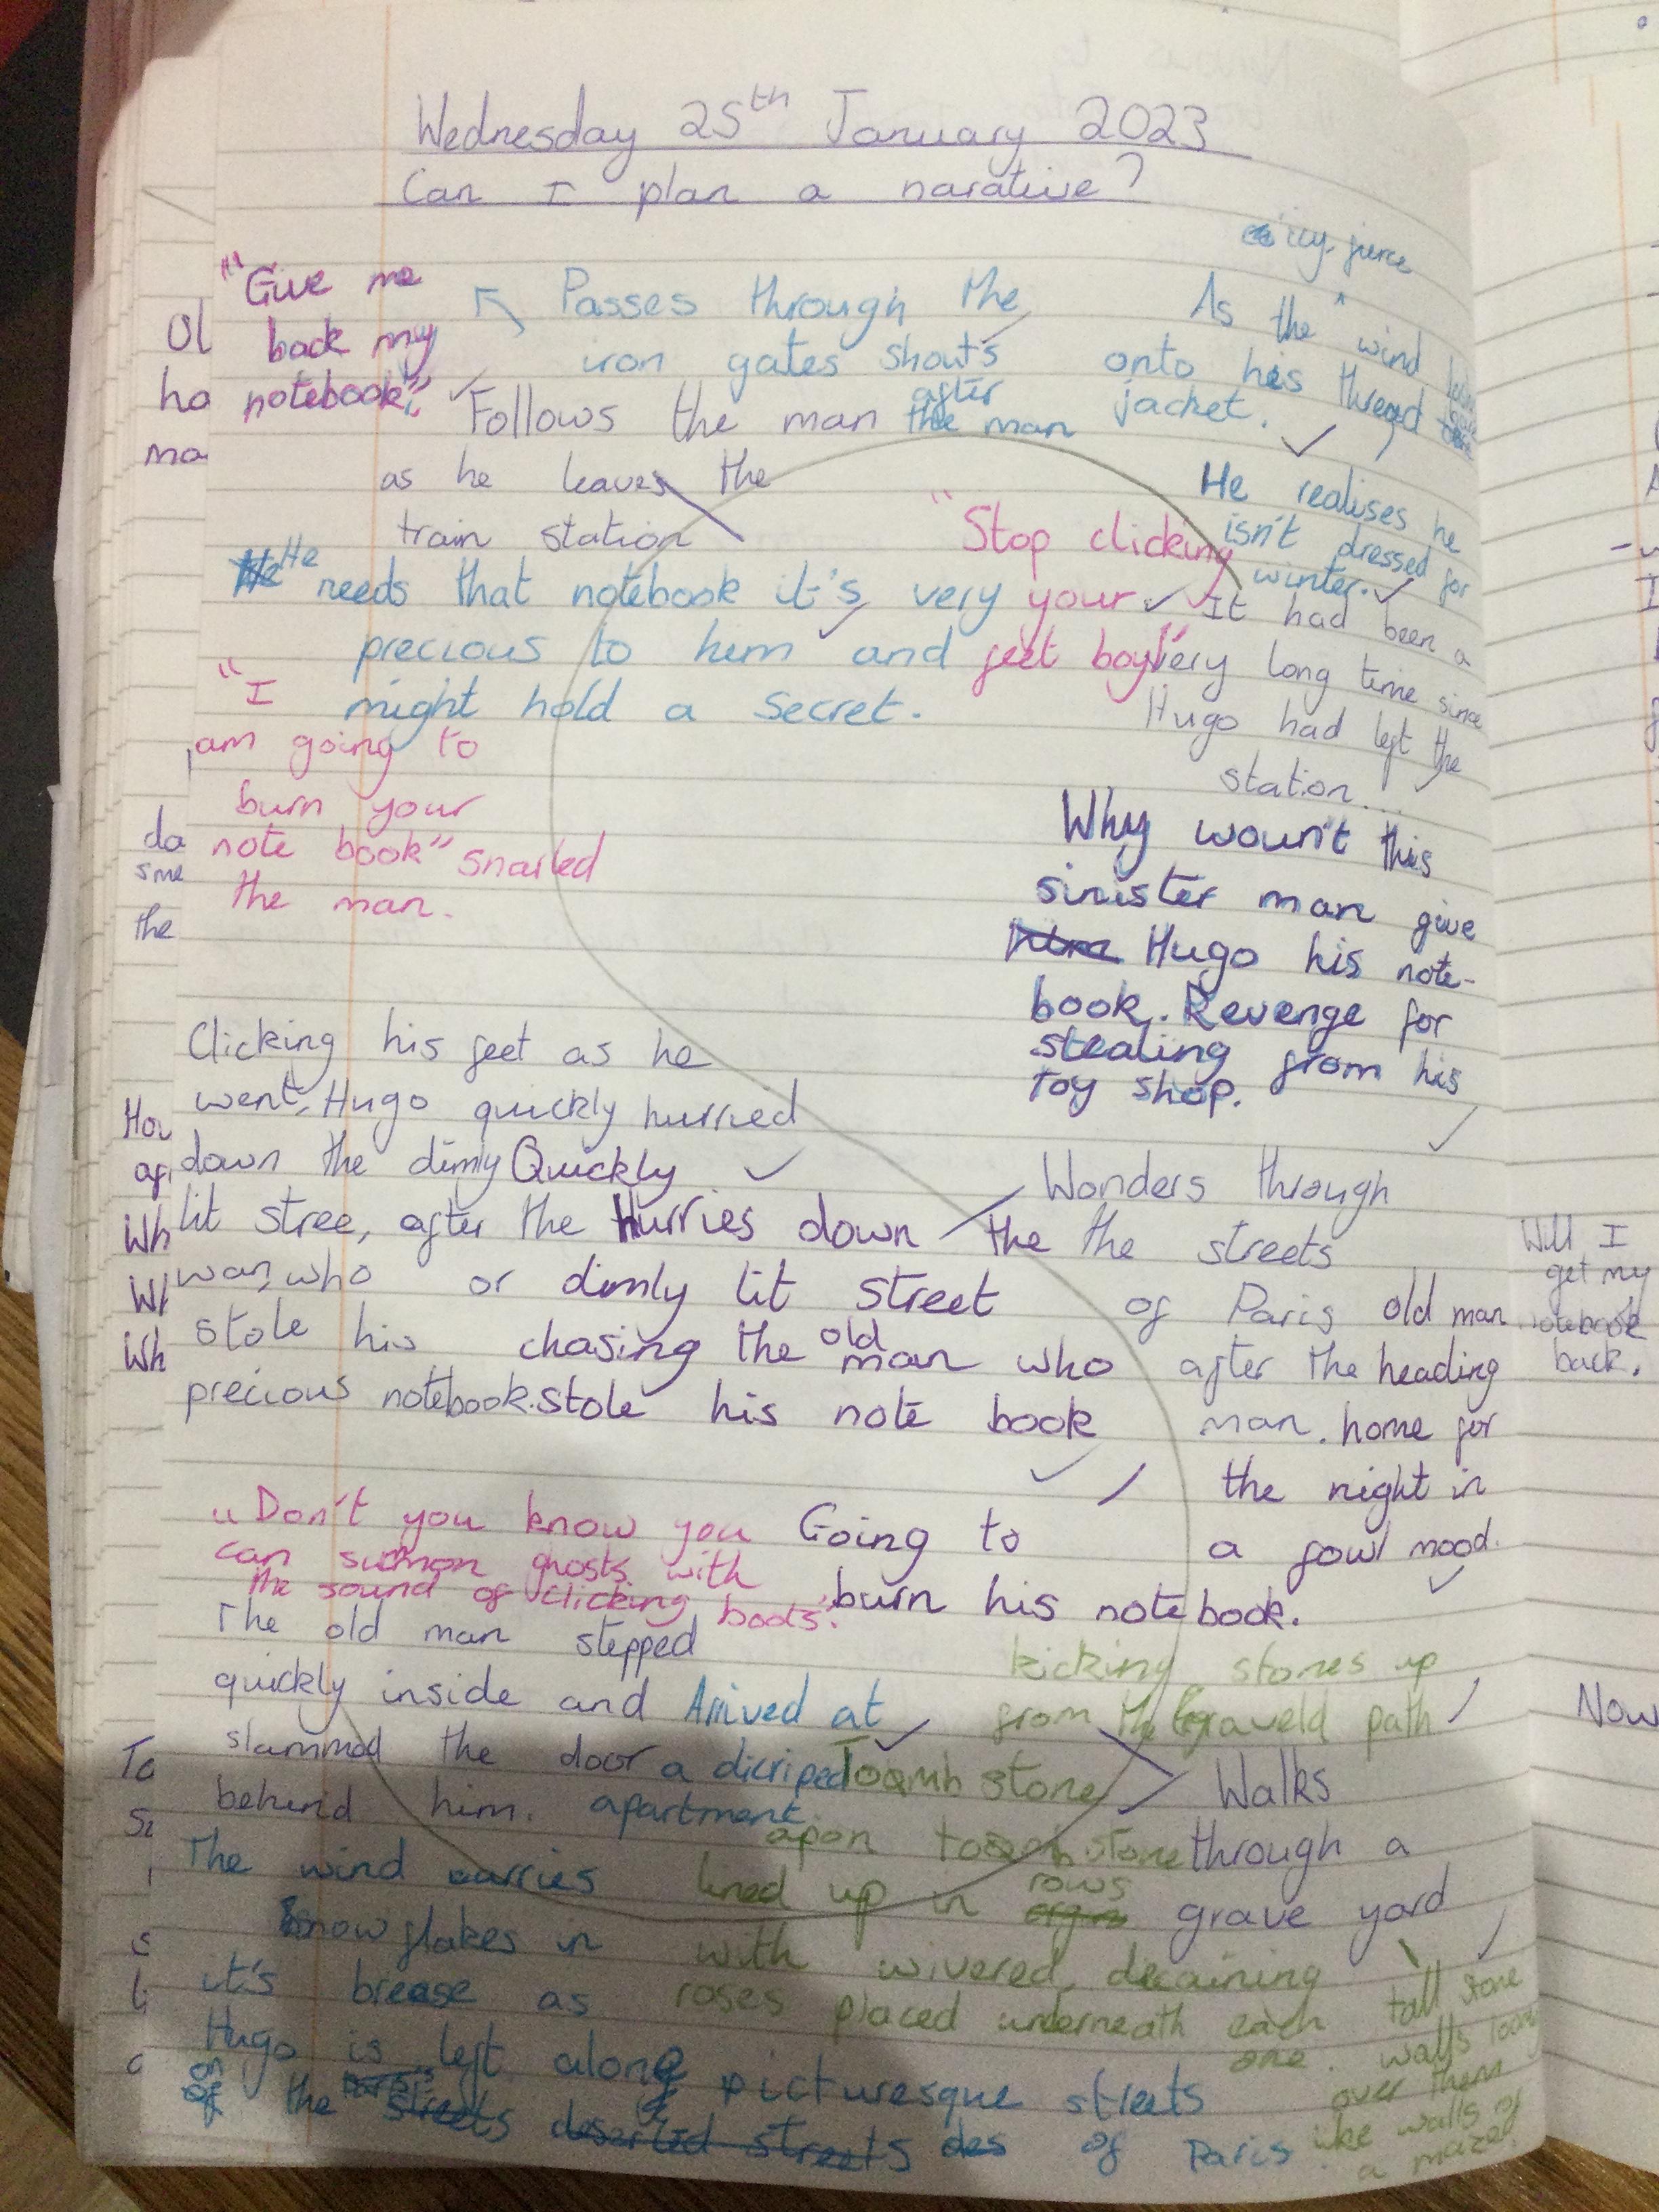 Wednesday 25th January 2023
Can I plan a narative?
"Give me
back my
notebook",
Passes through the
iron gates shouts
after
the man
icy, fierce
As the wind
onto his thread
jacket.
Follows the man
as he leaves the
train station
He realises he
isn't dressed for
winter.
"Stop clicking
your
feet boy"
He needs that notebook it's very
precious to him and
might hold a secret.
It had been a
very long time since
Hugo had left the
station...
"I
am going to
burn your
note book" snarled
the man.
Why woun't this
sinister man give
Hugo his note-
book. Revenge for
stealing from his
toy shop.
Clicking his feet as he
went, Hugo quickly hurried
down the dimly
lit stree, after the
man, who
stole his
precious notebook.
Quickly
Hurries down the
or dimly lit street
chasing the old man who
stole his note book
Wonders through
the streets
of Paris
after the
man.
old man
heading
home for
the night in
a fowl mood.
Will I
get my
notebook
back.
"Don't you know you
can summon ghosts with
the sound of clicking boots".
Going to
burn his notebook.
The old man stepped
quickly inside and
slammed the door
behind him.
Arrived at
a dicriped
apartment
kicking stones up
from the graveld path
Toamb stone
apon toomb stone
lined up in rows
with wivered, decaining
roses placed underneath each
one.
Walks
through a
grave yard
tall stone
walls loom
over them
like walls of
a maze.
The wind carries
snowflakes in
it's brease as
Hugo is left alone
on the picturesque streets
of Paris.
Now
Ol
ho
ma
da
sme
the
Hou
af
Wh
Wh
Wh
To